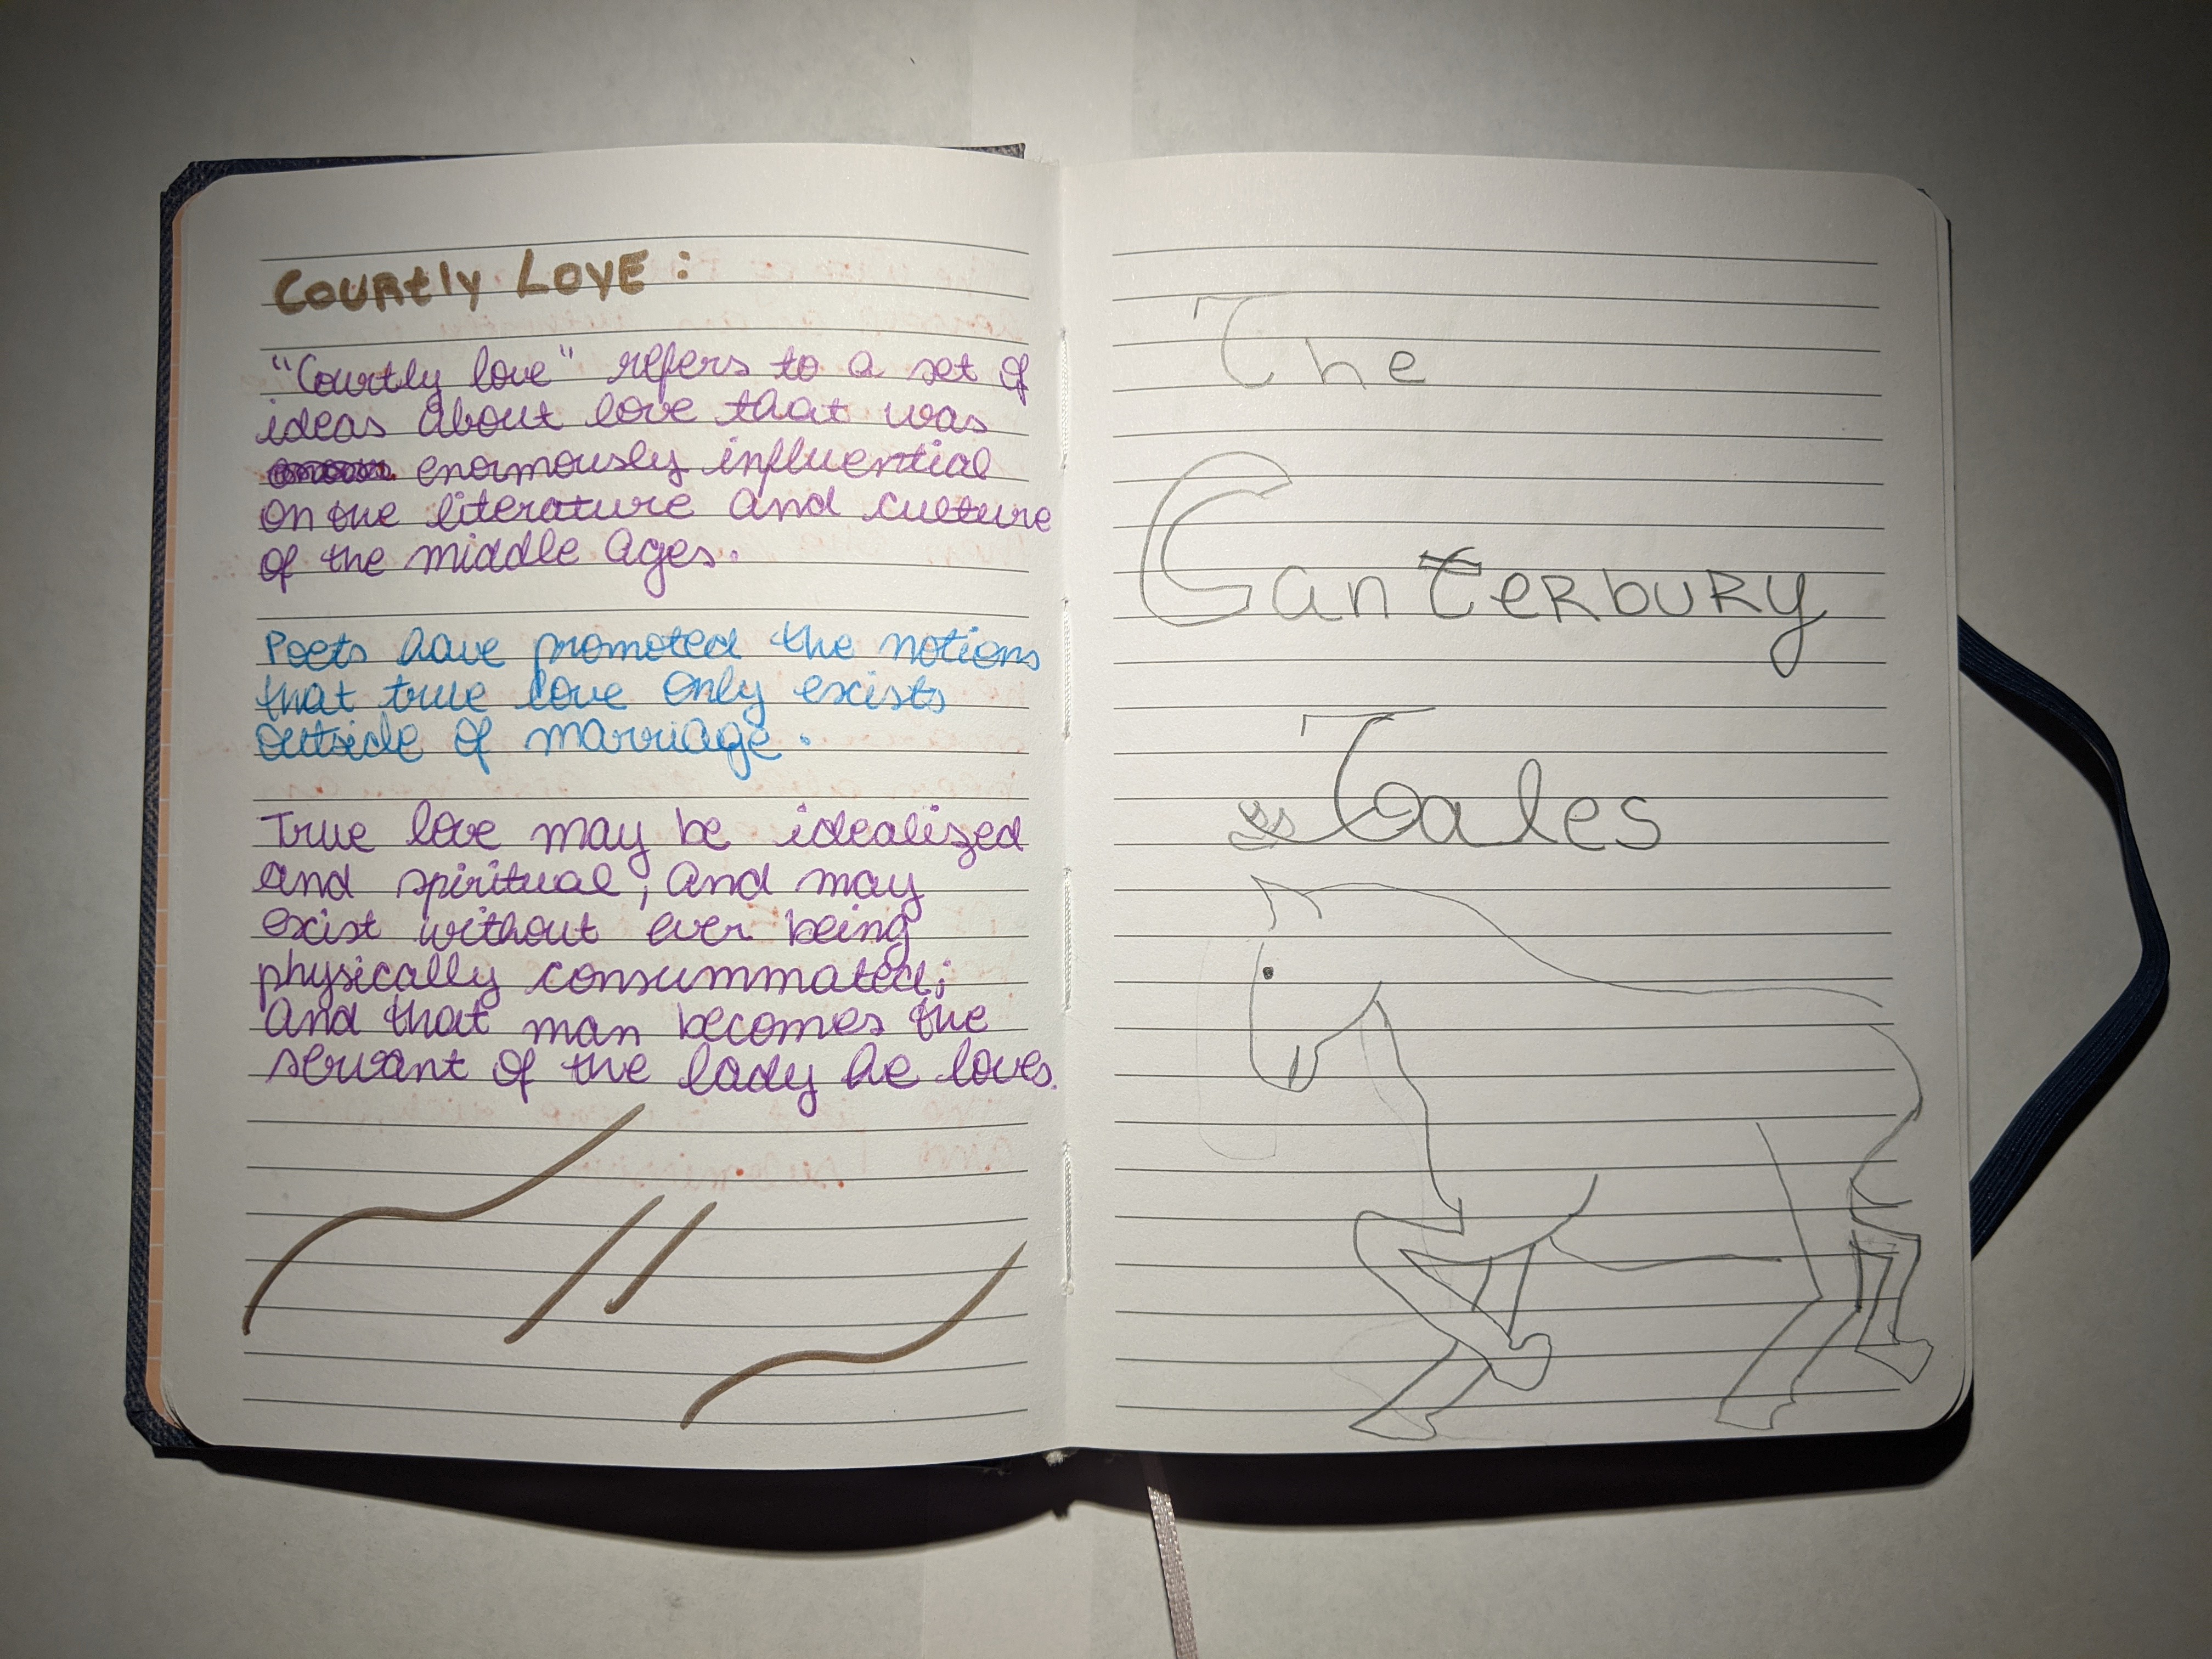 Courtly Love :
"Courtly love" refers to a set of
ideas about love that was
enormously influential
on the literature and culture
of the middle Ages.
Poets have promoted the notions
that true love only exists
outside of marriage.
True love may be idealized
and spiritual, and may
exist without ever being
physically consummated;
and that man becomes the
servant of the lady he loves.
The
Canterbury
Tales